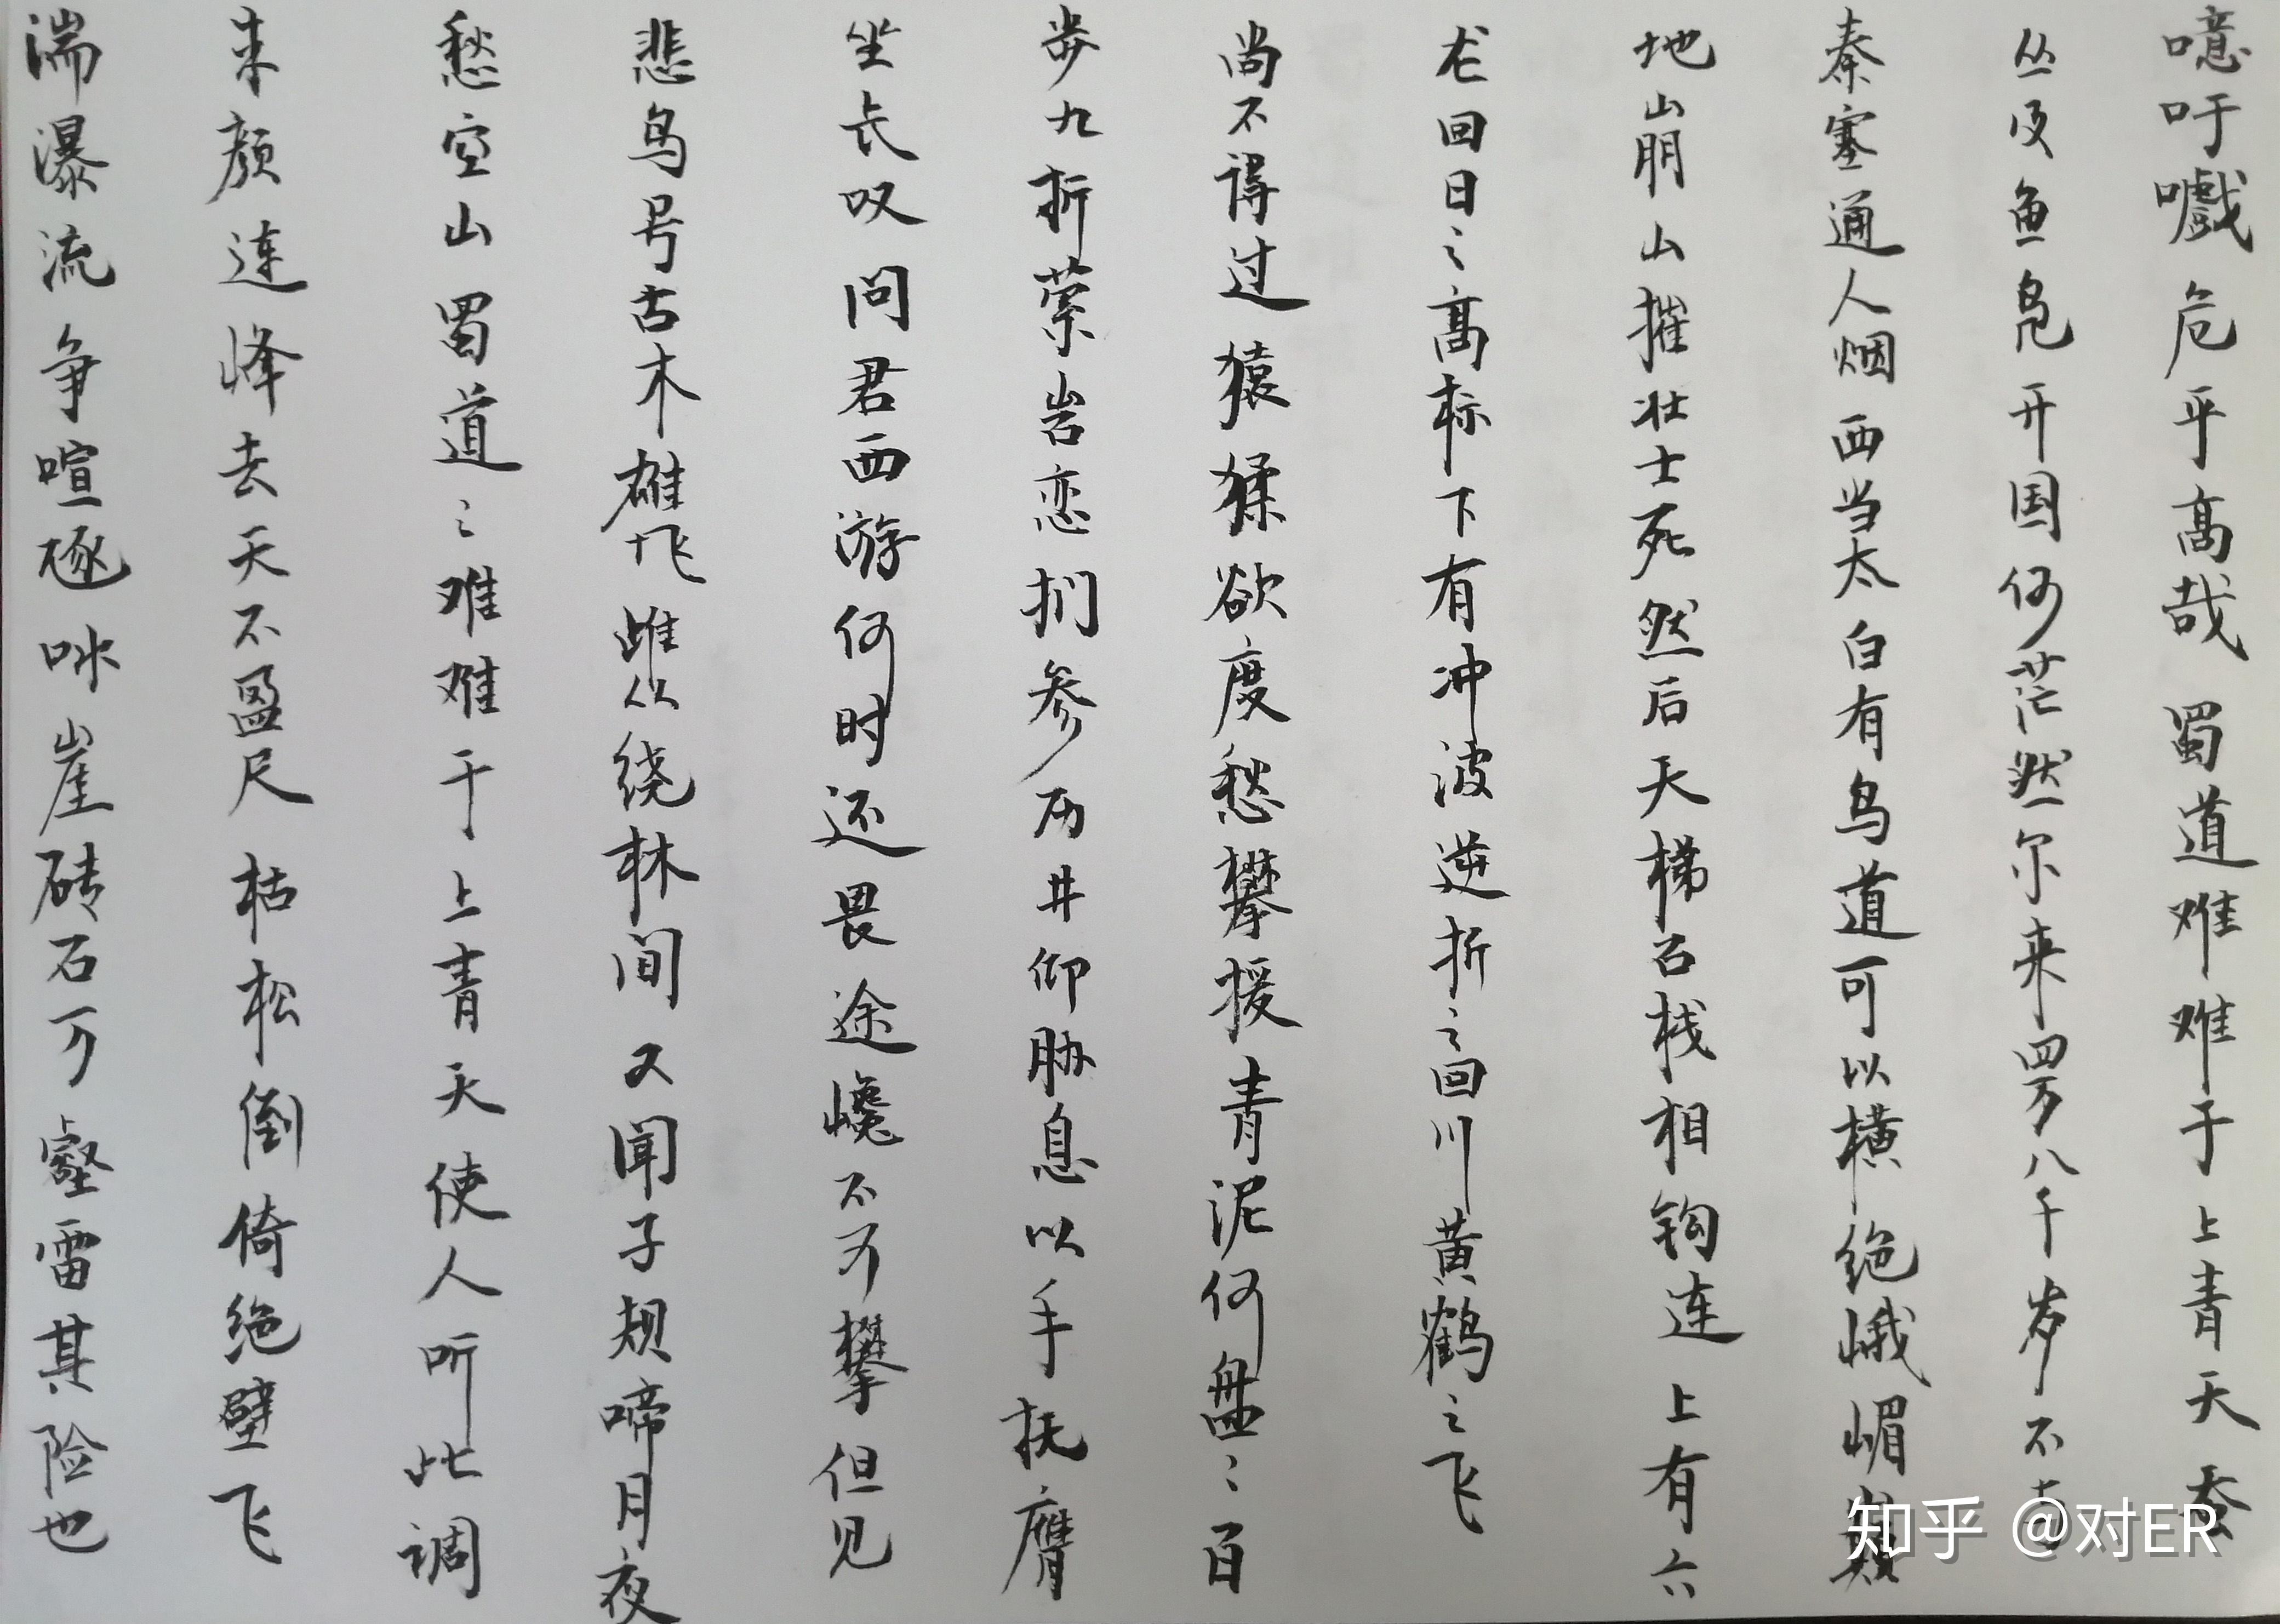 噫吁嚱危乎高哉蜀道难难于上青天蚕
丛及鱼凫开国何茫然尔来四万八千岁不与
秦塞通人烟西当太白有鸟道可以横绝峨嵋巅
地崩山摧壮士死然后天梯石栈相钩连上有六
龙回日之高标下有冲波逆折之回川黄鹤之飞
尚不得过猿猱欲度愁攀援青泥何盘〻百
步九折萦岩恋扪参历井仰胁息以手抚膺
坐长叹问君西游何时还畏途巉不可攀但见
悲鸟号古木雄飞雌从绕林间又闻子规啼月夜
愁空山蜀道之难难于上青天使人听此调
朱颜连峰去天不盈尺枯松倒倚绝壁飞
湍瀑流争喧崖砖石万壑雷其险也
知乎 @对ER